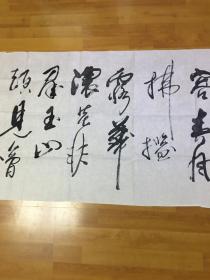 容春風
拂檻
露華
濃若非
羣玉山
頭見會